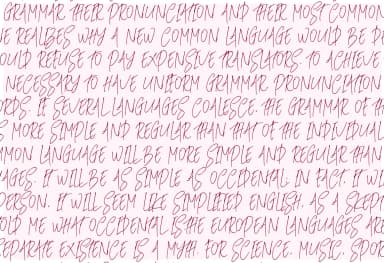 GRAMMAR, THEIR PRONUNCIATION AND THEIR MOST COMMON
E REALIZES WHY A NEW COMMON LANGUAGE WOULD BE DE
OULD REFUSE TO PAY EXPENSIVE TRANSLATORS. TO ACHIEVE
NECESSARY TO HAVE UNIFORM GRAMMAR, PRONUNCIATION
ORDS. IF SEVERAL LANGUAGES COALESCE, THE GRAMMAR OF TH
S MORE SIMPLE AND REGULAR THAN THAT OF THE INDIVIDUAL
MMON LANGUAGE WILL BE MORE SIMPLE AND REGULAR THAN
AGES. IT WILL BE AS SIMPLE AS OCCIDENTAL. IN FACT, IT WI
PERSON, IT WILL SEEM LIKE SIMPLIFIED ENGLISH, AS A SKEPT
OLD ME WHAT OCCIDENTAL IS.THE EUROPEAN LANGUAGES ARE
SEPARATE EXISTENCE IS A MYTH. FOR SCIENCE, MUSIC, SPOR